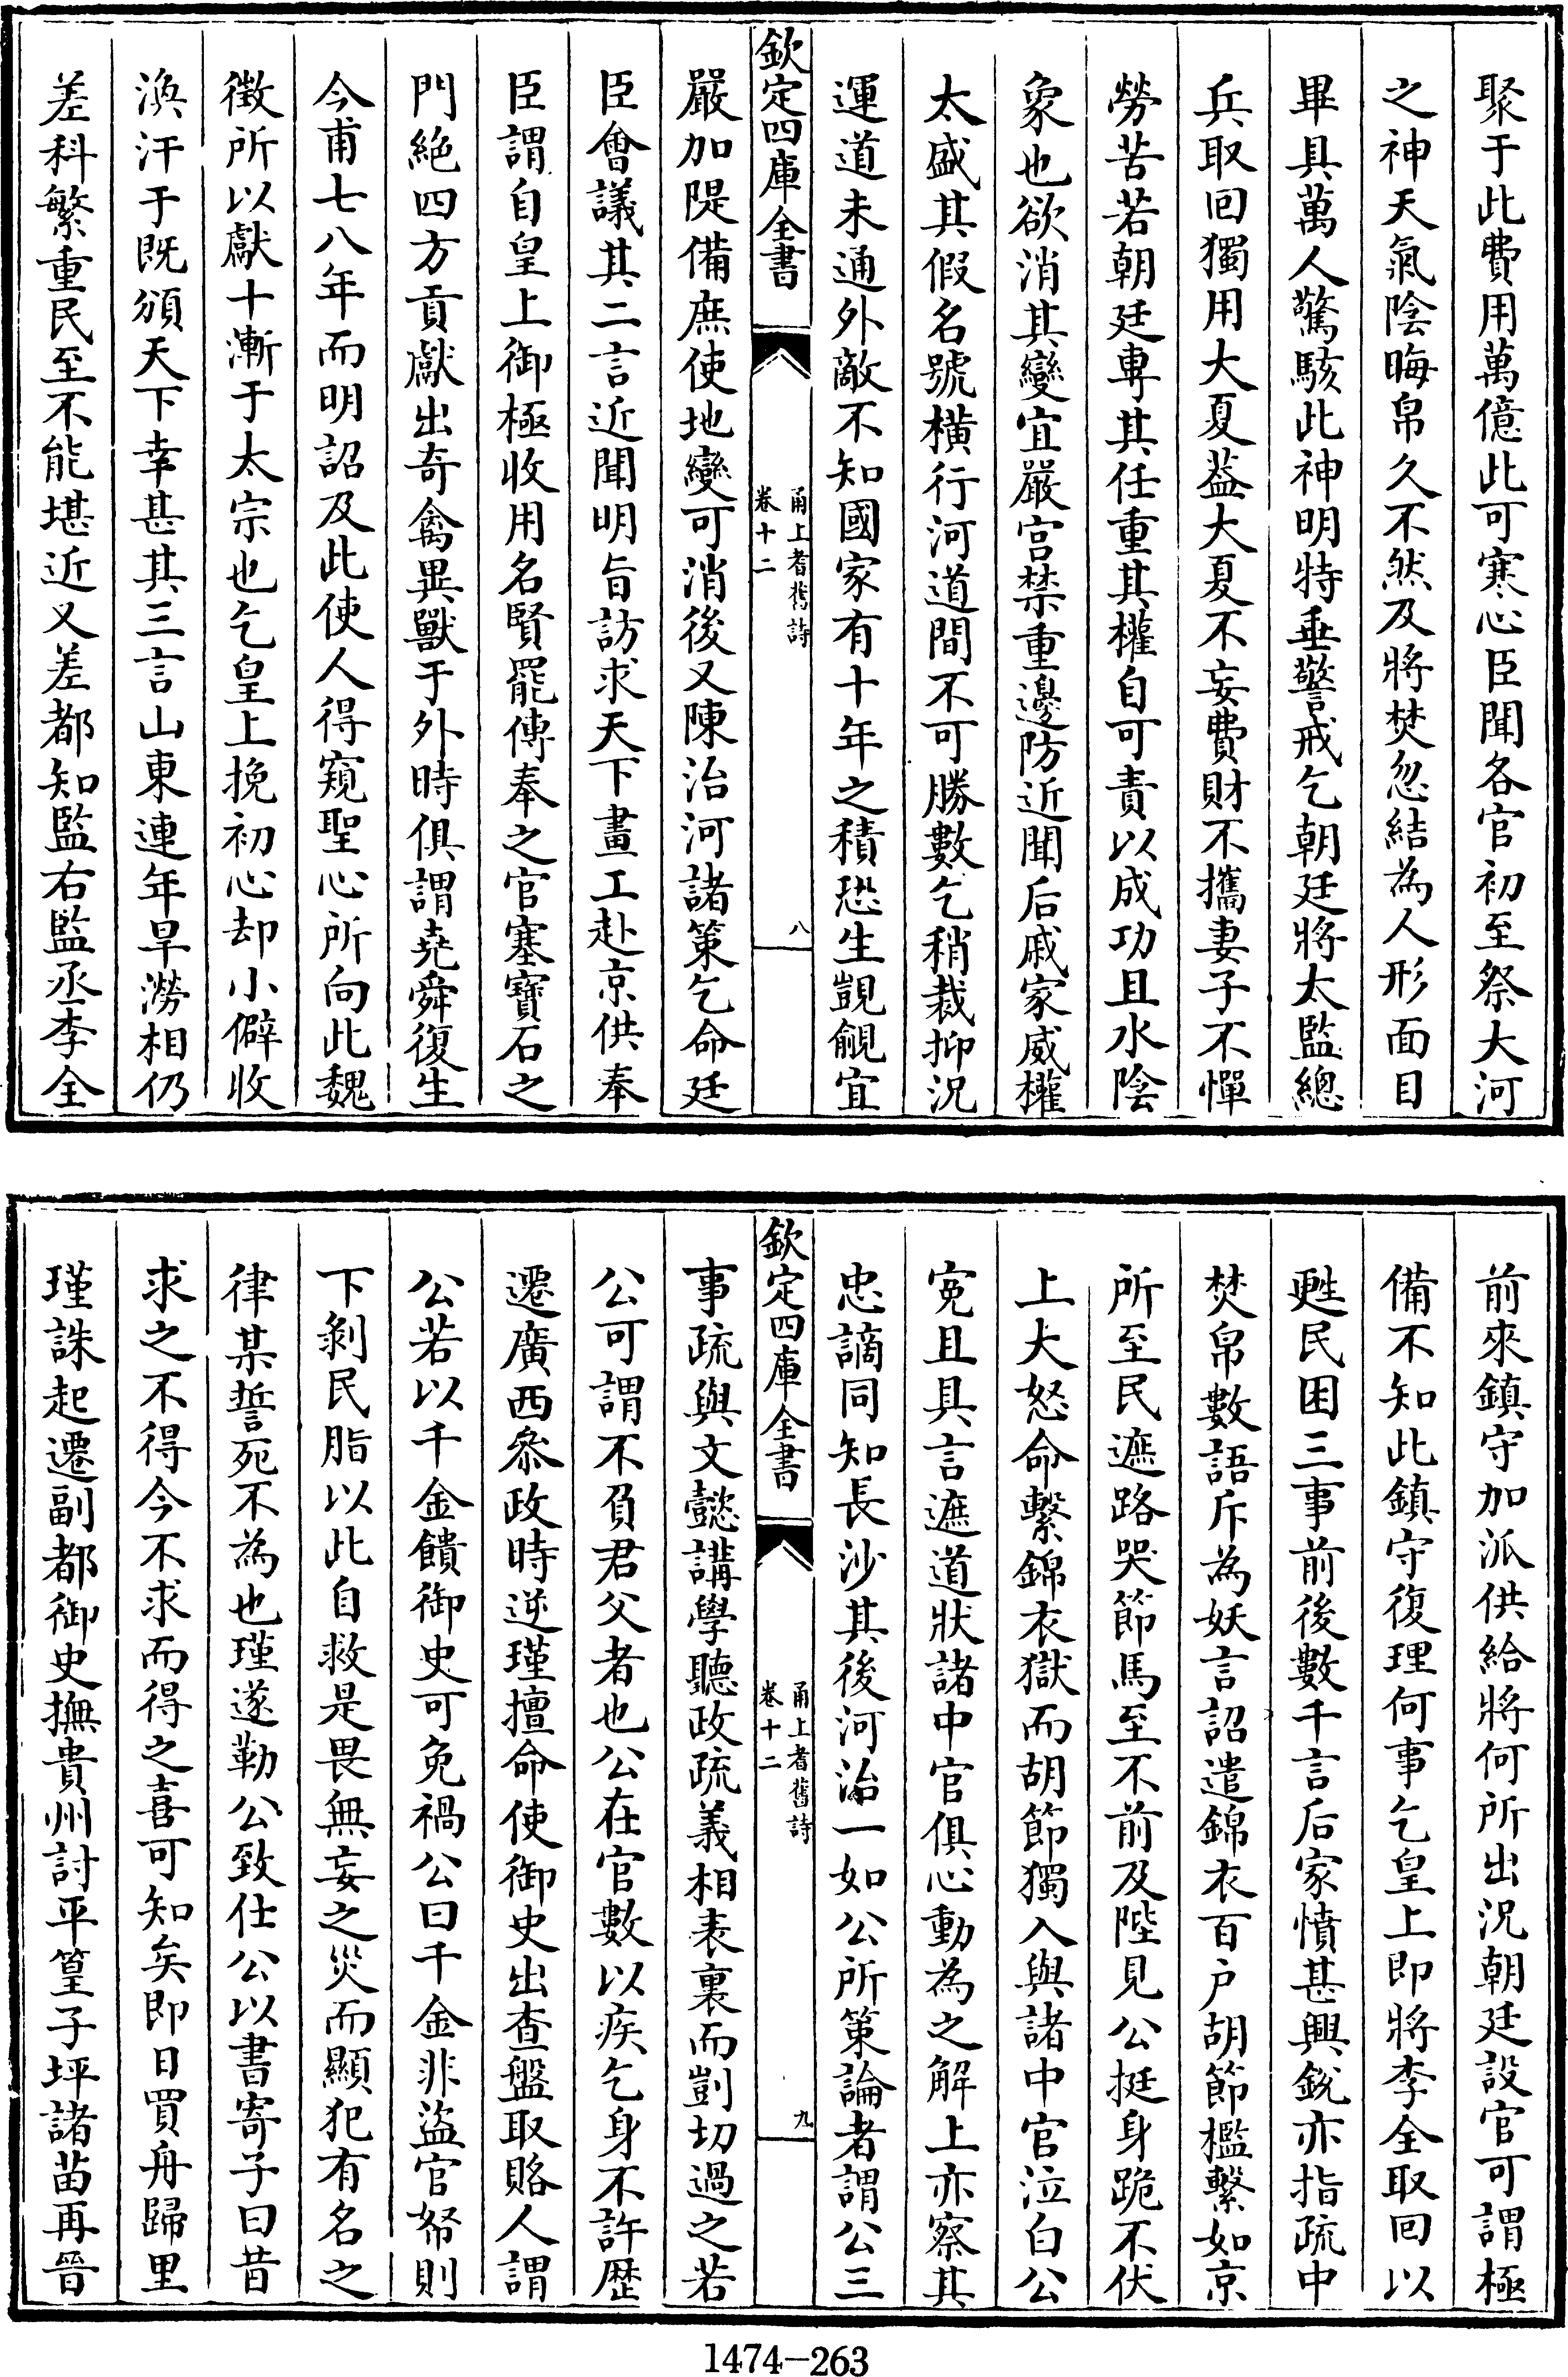 聚于此費用萬億此可寒心臣聞各官初至祭大河
之神天氣陰晦帛久不然及將焚忽結為人形面目
畢具萬人驚駭此神明特垂警戒乞朝廷將太監總
兵取回獨用大夏葢大夏不妄費財不攜妻子不憚
勞苦若朝廷專其任重其權自可責以成功且水陰
象也欲消其變宜嚴宫禁重邊防近聞后戚家威權
太盛其假名號橫行河道間不可勝數乞稍裁抑況
運道未通外敵不知國家有十年之積恐生覬覦宜
欽定四庫全書
甬上耆舊詩
卷十二
八
嚴加隄備庶使地變可消後又陳治河諸策乞命廷
臣會議其二言近聞明旨訪求天下畫工赴京供奉
臣謂自皇上御極收用名賢罷傳奉之官塞寶石之
門絶四方貢獻出奇禽異獸于外時俱謂堯舜復生
今甫七八年而明詔及此使人得窺聖心所向此魏
徵所以獻十漸于太宗也乞皇上挽初心却小僻收
渙汗于既頒天下幸甚其三言山東連年旱澇相仍
差科繁重民至不能堪近又差都知監右監丞李全
前來鎮守加派供給將何所出況朝廷設官可謂極
備不知此鎮守復理何事乞皇上即將李全取回以
甦民困三事前後數千言后家憤甚興鋭亦指疏中
焚帛數語斥為妖言詔遣錦衣百户胡節檻繫如京
所至民遮路哭節馬至不前及陛見公挺身跪不伏
上大怒命繫錦衣獄而胡節獨入與諸中官泣白公
寃且具言遮道狀諸中官俱心動為之解上亦察其
忠謫同知長沙其後河治一如公所策論者謂公三
欽定四庫全書
甬上耆舊詩
卷十二
九
事疏與文懿講學聽政疏義相表裏而剴切過之若
公可謂不負君父者也公在官數以疾乞身不許歴
遷廣西叅政時逆瑾擅命使御史出查盤取賂人謂
公若以千金饋御史可免禍公曰千金非盜官帑則
下剥民脂以此自救是畏無妄之災而顯犯有名之
律某誓死不為也瑾遂勒公致仕公以書寄子曰昔
求之不得今不求而得之喜可知矣即日買舟歸里
瑾誅起遷副都御史撫貴州討平篁子坪諸苗再晉
1474-263